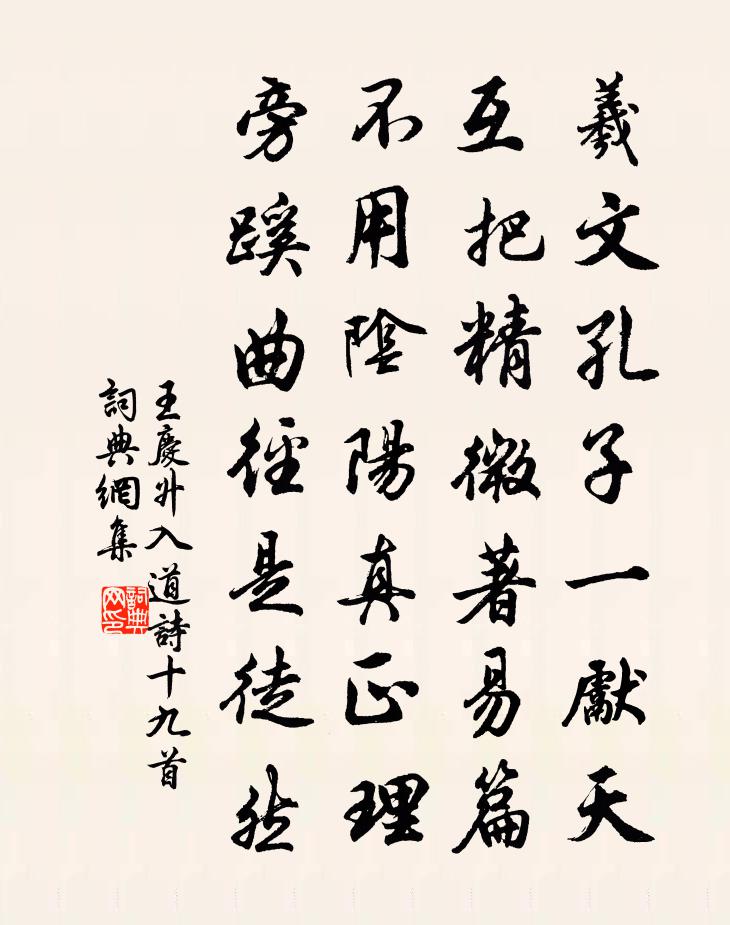 羲文孔子一獻天
互把精微著易篇
不用陰陽真正理
旁蹊曲徑是徒然
王慶升入道詩十九首
詞典網集
詞典网印